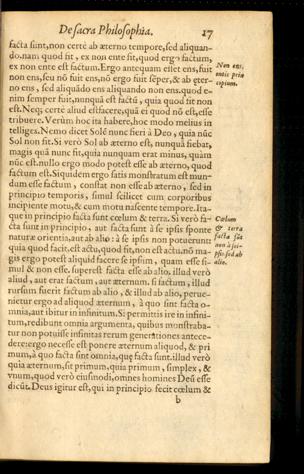 De sacra Philosophia. 17
facta sunt, non certè ab æterno tempore, sed aliquan-
do. nam quod fit, ex non ente fit, quod ergo factum,
ex non ente est factum. Ergo antequam esset ens, fuit
non ens, seu nō fuit ens, nō ergo fuit sēper, & ab æter-
no ens, sed aliquādo ens aliquando non ens. quod e-
nim semper fuit, nunquā est factū, quia quod fit non
est. Neq; certè aliud est facere, quā ei quod nō est, esse
tribuere. Verùm hoc ita habere, hoc modo melius in
telliges. Nemo dicet Solē nunc fieri à Deo, quia nūc
Sol non fit. Si verò Sol ab æterno est, nunquā fiebat,
magis quā nunc fit, quia nunquam erat minus, quàm
nūc est. nullo ergo modo potest esse ab æterno, quod
factum est. Siquidem ergo satis monstratum est mun-
dum esse factum, constat non esse ab æterno, sed in
principio temporis, simul scilicet cum corporibus
incipiente motu, & cum motu nascente tempore. Ita-
que in principio facta sunt cœlum & terra. Si verò fa-
cta sunt in principio, aut facta sunt à se ipsis sponte
natura orientia, aut ab alio: à se ipsis non potuerunt:
quia quod facit. est actu, quod fit, non est actu. nō ma-
gis ergo potest aliquid facere se ipsum, quam esse si-
mul & non esse. superest facta esse ab alio. illud verò
aliud, aut erat factum, aut æternum. si factum, illud
rursum fuerit factum ab alio, & illud ab alio, perue-
nietur ergo ad aliquod æternum, à quo sint facta o-
mnia, aut ibitur in infinitum. Si permittis ire in infini-
tum, redibunt omnia argumenta, quibus monstraba-
tur non potuisse infinitas rerum generationes antece-
dere: ergo necesse est ponere æternum aliquod, & pri
mum, à quo facta sint omnia, quę facta sunt. illud verò
quia æternum, sit primum, quia primum, simplex, &
vnum, quod verò eiusmodi, omnes homines Deū esse
dicūt. Deus igitur est, qui in principio fecit cœlum &
b
Non ens,
entis prin
cipium.
Cœlum
& terra
facta sūt
non à sei-
psis sed ab
alio.